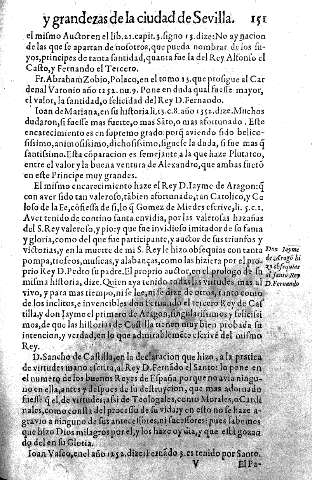 y grandezas de la ciudad de Sevilla. 151
el mismo Auctor en el lib. 21. capit. 3. signo 15. dize: No ay nacion
de las que se apartan de nosotros, que pueda nombrar de los su-
yos, principes de tanta santidad, quanta fue la del Rey Alfonso el
Casto, y Fernando el Tercero.
Fr. Abraham Zobio, Polaco, en el tomo 13. que prosigue al Car
denal Varonio año 1252. nu. 9. Pone en duda qual fuesse mayor,
el valor, la santidad, o felicidad del Rey D. Fernando.
Ioan de Mariana, en su historia li. 13. c. 8. año 1352. dize. Muchos
dudaron, si fuesse mas fuerte, o mas Sāto, o mas afortunado. Este
encarecimiento es en supremo grado. porq̃ aviendo sido belico-
sissimo, animosissimo, dichosissimo, sigue se la duda, si fue mas q̃
santissimo. Esta cōparacion es semejante a la que haze Plutarco,
entre el valor y la buena ventura de Alexandro, que ambas fuerō
en este Principe muy grandes.
El mismo encarecimiento haze el Rey D. Iayme de Aragon: q̃
con aver sido tan valeroso, tābien afortunado, tan Catolico, y Ce
loso de la Fe, cōfiessa de si, lo q̃ Gomez de Miedes escrive, li. 5. c. 1.
Aver tenido de contino santa envidia, por las valerosas hazañas
del S. Rey valeroso, y pio: y que fue invidioso imitador de su fama
y gloria, como del que fue participante, y auctor de sus triunfos y
victorias, y en la muerte de mi S. Rey le hizo obsequias con tanta
pompa, trofeos, musicas, y alabanças, como las hiziera por el pro
prio Rey D. Pedro su padre. El proprio auctor, en el prologo de su
misma historia, dize. Quien aya tenido todas las virtudes mas al
vivo, y para mas tiempo, ni se lee, ni se dize de otros, tanto como
de los inclitos, e invencibles don Fernando el tercero Rey de Cas
tilla, y don Iayme el primero de Aragon, singularissimos y felicissi
mos, de que las historias de Castilla tienen muy bien probada su
intencion, y verdad, en lo que admirablemēte escrive del mismo
Rey.
Don Iayme
de Aragō hi
zo obsequias
al santo Rey
D. Fernando
D. Sancho de Castilla, en la declaracion que hizo, a la pratica
de virtudes mano escrita, al Rey D. Fernādo el Santo: lo pone en
el numero de los buenos Reyes de España. porque no avia ningu-
no en ella, antes y despues de su destruycion, que mas adornado
fuesse q̃ el, de virtudes; assi de Teologales, como Morales, o Cardi
nales, como consta del processo de su vida; y en esto no se haze a-
gravio a ninguno de sus antecessores, ni sucessores; pues sabemos
que hizo Dios milagros por el, y los haze oy dia, y que està gozan
do del en su Gloria.
Ioan Vaseo, en el año 1252. dize: Fernādo 3. es tenido por Santo.
V El Pa-